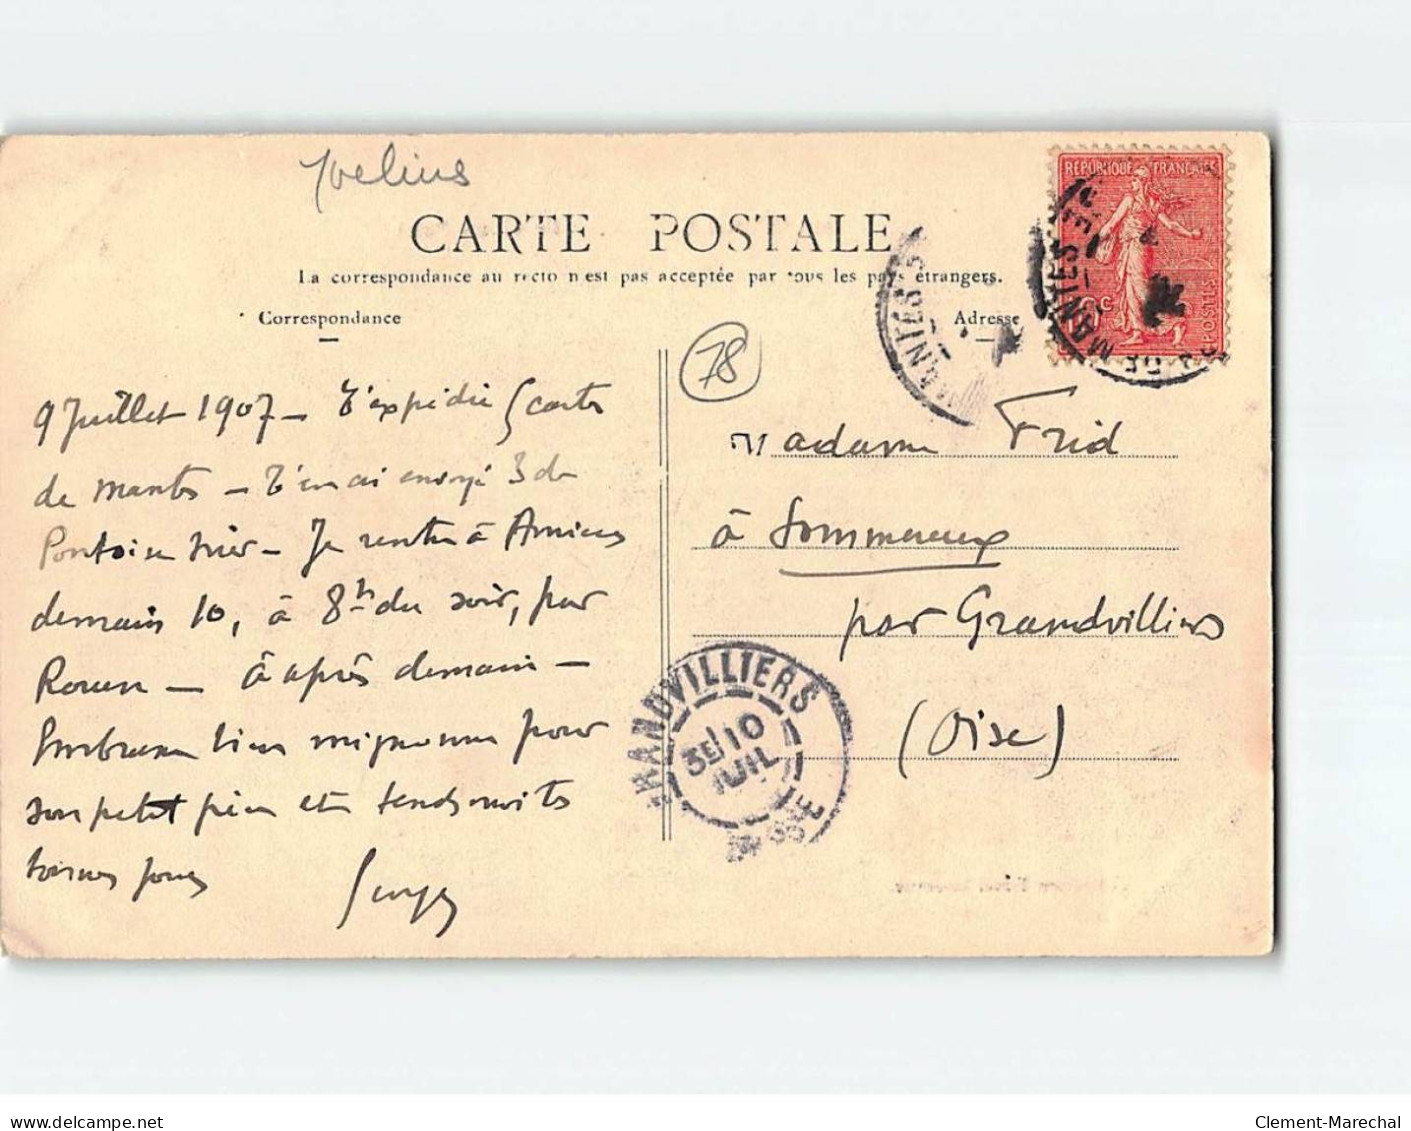 Yvelines
CARTE POSTALE
La correspondance au recto n'est pas acceptée par tous les pays étrangers.
Correspondance
Adresse
78
RÉPUBLIQUE FRANÇAISE
10 c
POSTES
MANTES
DE MANTES
9 Juillet 1907 - J'expédie 5 cartes
de Mantes - J'en ai envoyé 3 de
Pontoise hier - Je rentre à Amiens
demain 10, à 8h du soir, par
Rouen - à après demain -
Embrasse bien mignonne pour
son petit père et tendresses
bonnes pour
Madame Frid
à Sommereux
par Grandvilliers
(Oise)
GRANDVILLIERS
3E 10
JUIL
OISE
Clement-Marechal
www.delcampe.net